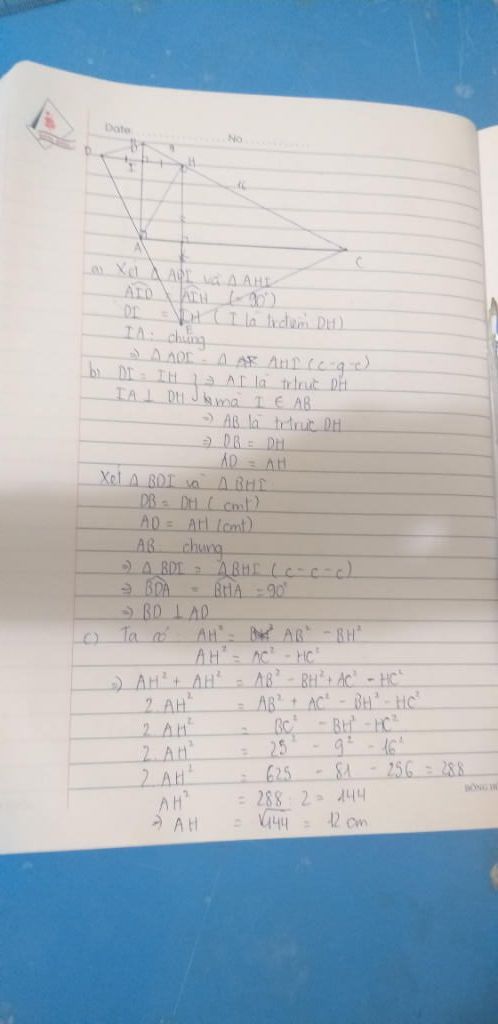 Date No
D B 9 H
I 16
A C
E
a) Xét Δ ADI và Δ AHI
AID AIH (= 90°)
DI = IH (I là trđiểm DH)
IA: chung
=> Δ ADI = Δ AHI (c-g-c)
b) DI = IH } => AI là trtrực DH
IA ⊥ DH mà I ∈ AB
=> AB là trtrực DH
=> DB = DH
AD = AH
Xét Δ BDI và Δ BHI
DB = DH (cmt)
AD = AH (cmt)
AB chung
=> Δ BDI = Δ BHI (c-c-c)
=> BDA = BHA = 90°
=> BD ⊥ AD
c) Ta có: AH² = AB² - BH²
AH² = AC² - HC²
=> AH² + AH² = AB² - BH² + AC² - HC²
2 AH² = AB² + AC² - BH² - HC²
2 AH² = BC² - BH² - HC²
2. AH² = 25² - 9² - 16²
2 AH² = 625 - 81 - 256 = 288
AH² = 288 : 2 = 144
=> AH = √144 = 12 cm